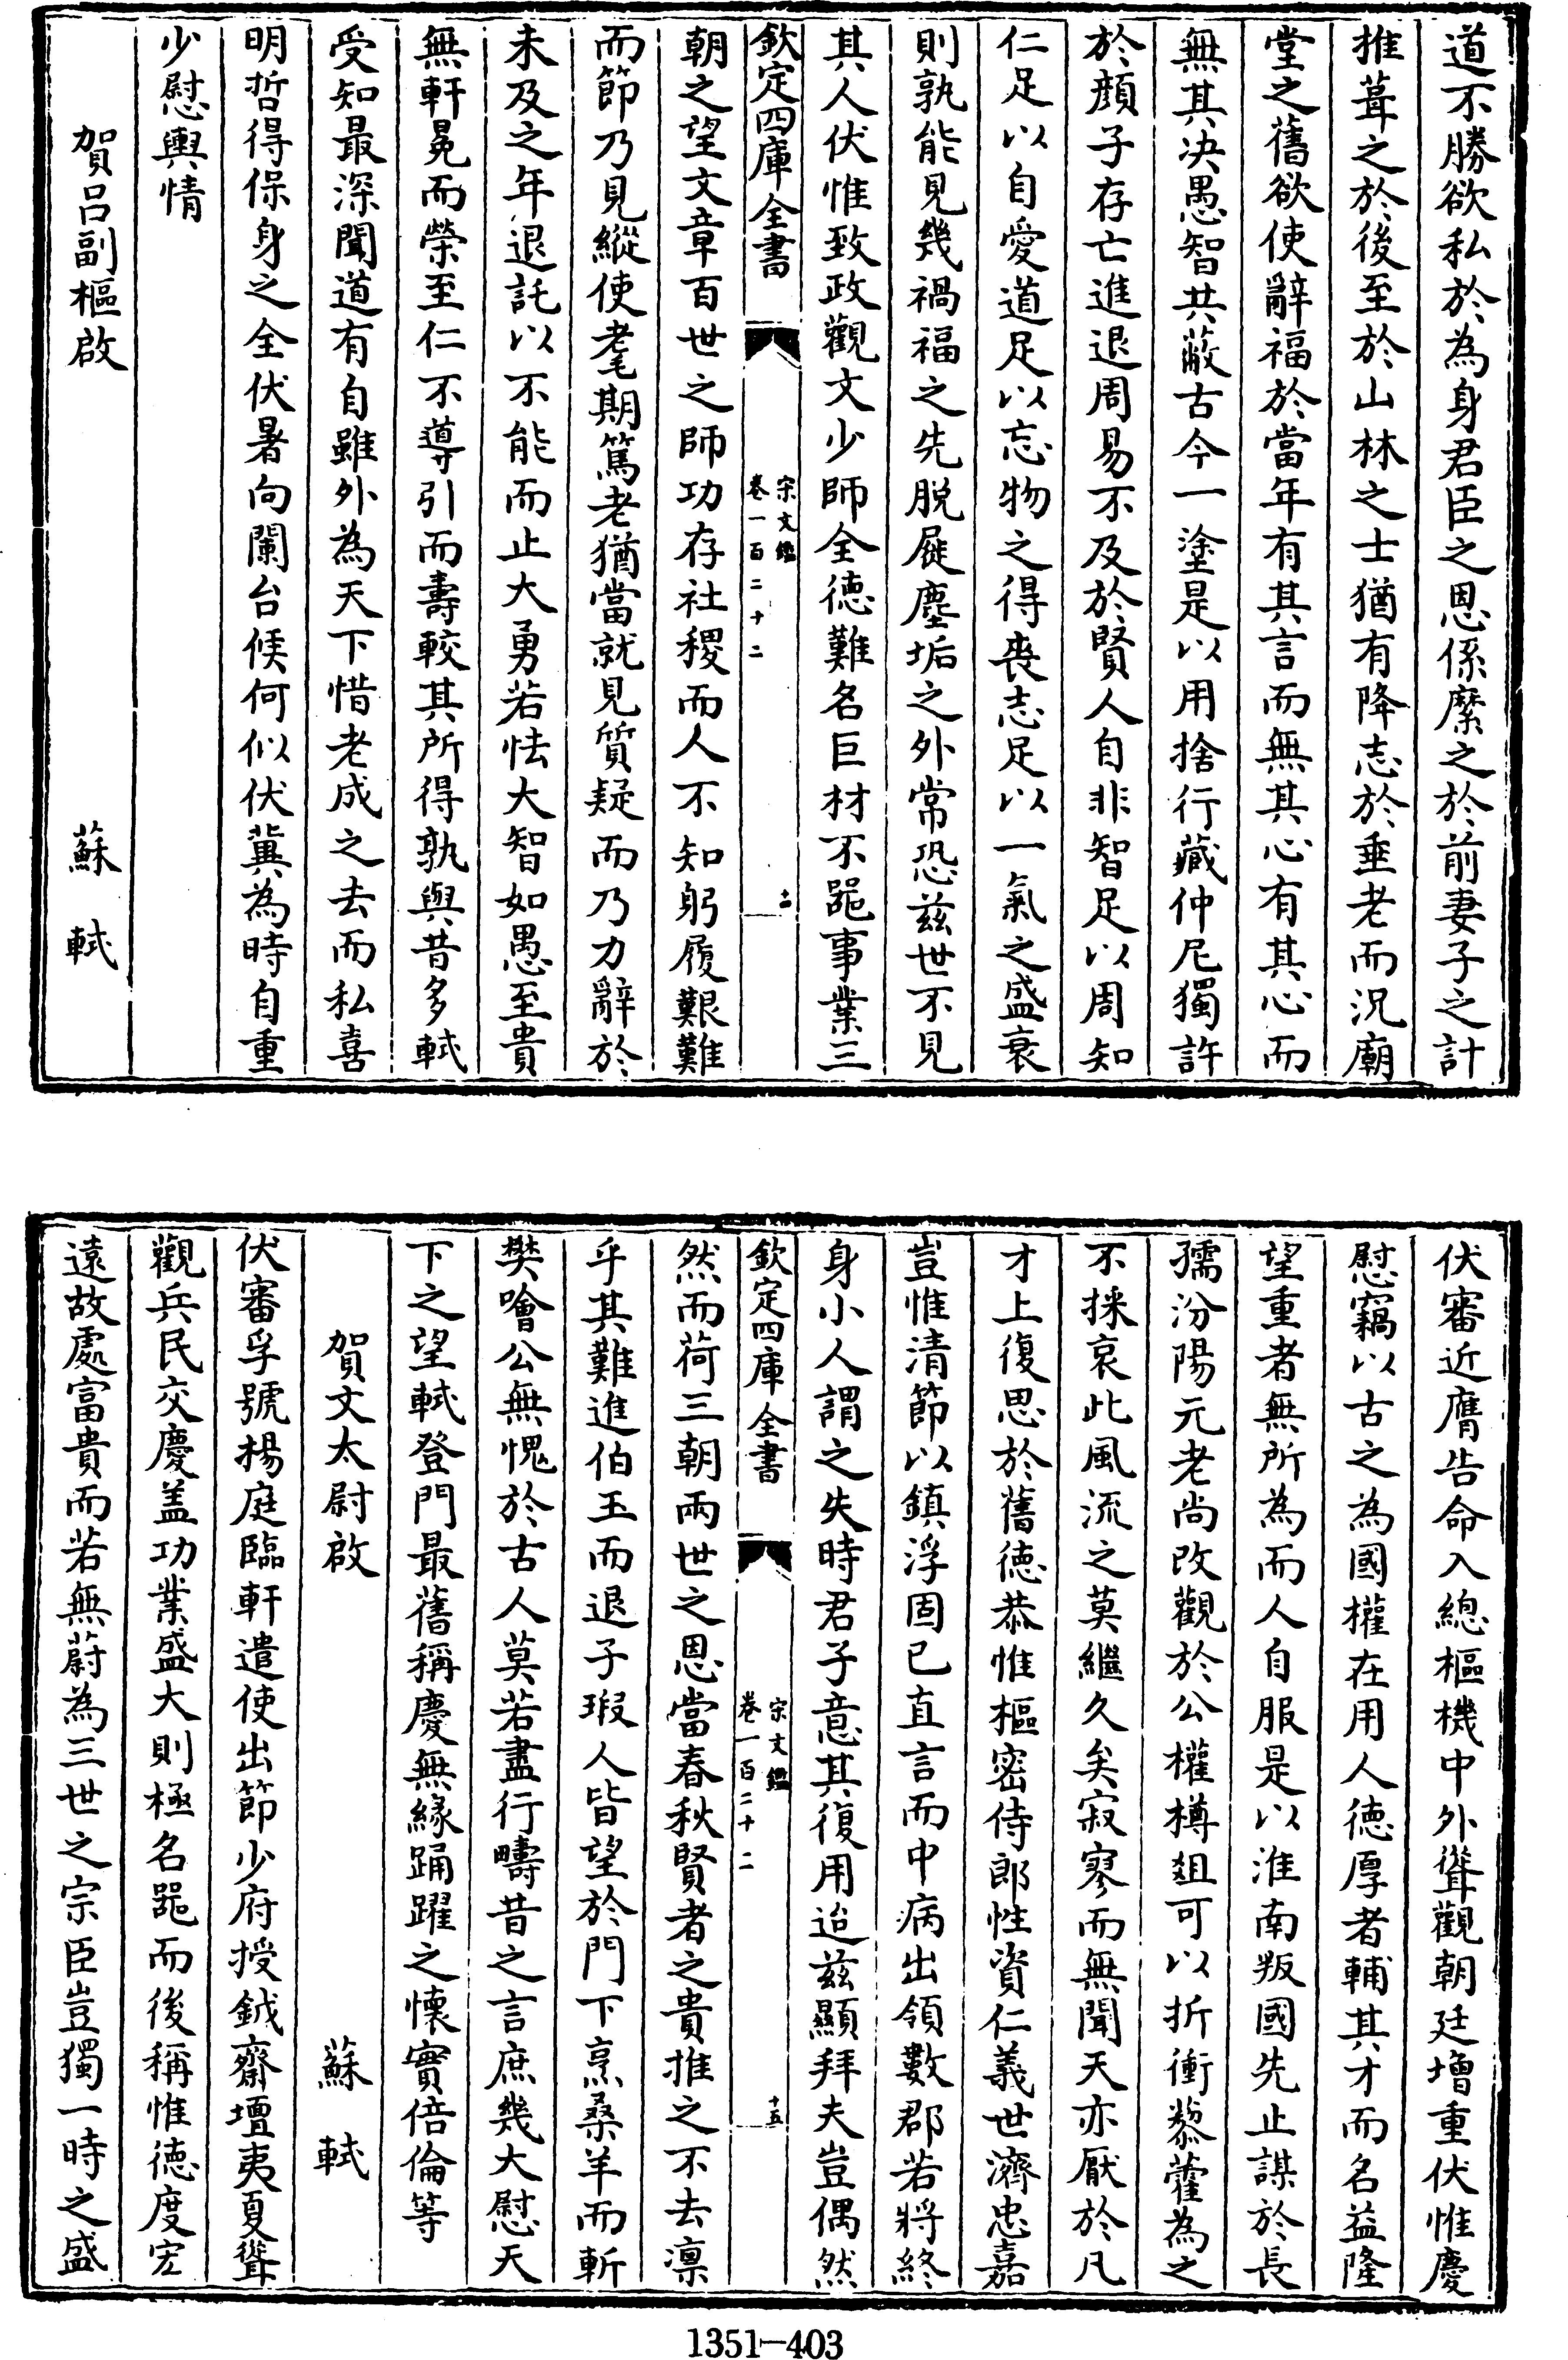 道不勝欲私於為身君臣之恩係縻之於前妻子之計
推葺之於後至於山林之士猶有降志於垂老而況廟
堂之舊欲使辭福於當年有其言而無其心有其心而
無其决愚智共蔽古今一塗是以用捨行藏仲尼獨許
於顔子存亡進退周易不及於賢人自非智足以周知
仁足以自愛道足以忘物之得喪志足以一氣之盛衰
則孰能見幾禍福之先脱屣塵垢之外常恐兹世不見
其人伏惟致政觀文少師全徳難名巨材不噐事業三
欽定四庫全書
宋文鑑
卷一百二十二
十四
朝之望文章百世之師功存社稷而人不知躬履艱難
而節乃見縱使耄期篤老猶當就見質疑而乃力辭於
未及之年退託以不能而止大勇若怯大智如愚至貴
無軒冕而榮至仁不導引而壽較其所得孰與昔多軾
受知最深聞道有自雖外為天下惜老成之去而私喜
明哲得保身之全伏暑向闌台候何似伏冀為時自重
少慰輿情
賀呂副樞啟 蘇軾
伏審近膺告命入總樞機中外聳觀朝廷增重伏惟慶
慰竊以古之為國權在用人徳厚者輔其才而名益隆
望重者無所為而人自服是以淮南叛國先止謀於長
孺汾陽元老尚改觀於公權樽俎可以折衝藜藿為之
不採哀此風流之莫繼久矣寂寥而無聞天亦厭於凡
才上復思於舊徳恭惟樞密侍郎性資仁義世濟忠嘉
豈惟清節以鎮浮固已直言而中病出領數郡若將終
身小人謂之失時君子意其復用迨兹顯拜夫豈偶然
欽定四庫全書
宋文鑑
卷一百二十二
十五
然而荷三朝兩世之恩當春秋賢者之貴推之不去凛
乎其難進伯玉而退子瑕人皆望於門下烹桑羊而斬
樊噲公無愧於古人莫若盡行疇昔之言庶幾大慰天
下之望軾登門最舊稱慶無緣踊躍之懐實倍倫等
賀文太尉啟 蘇軾
伏審孚號楊庭臨軒遣使出節少府授鉞齋壇夷夏聳
觀兵民交慶盖功業盛大則極名噐而後稱惟徳度宏
遠故處富貴而若無蔚為三世之宗臣豈獨一時之盛
1351-403